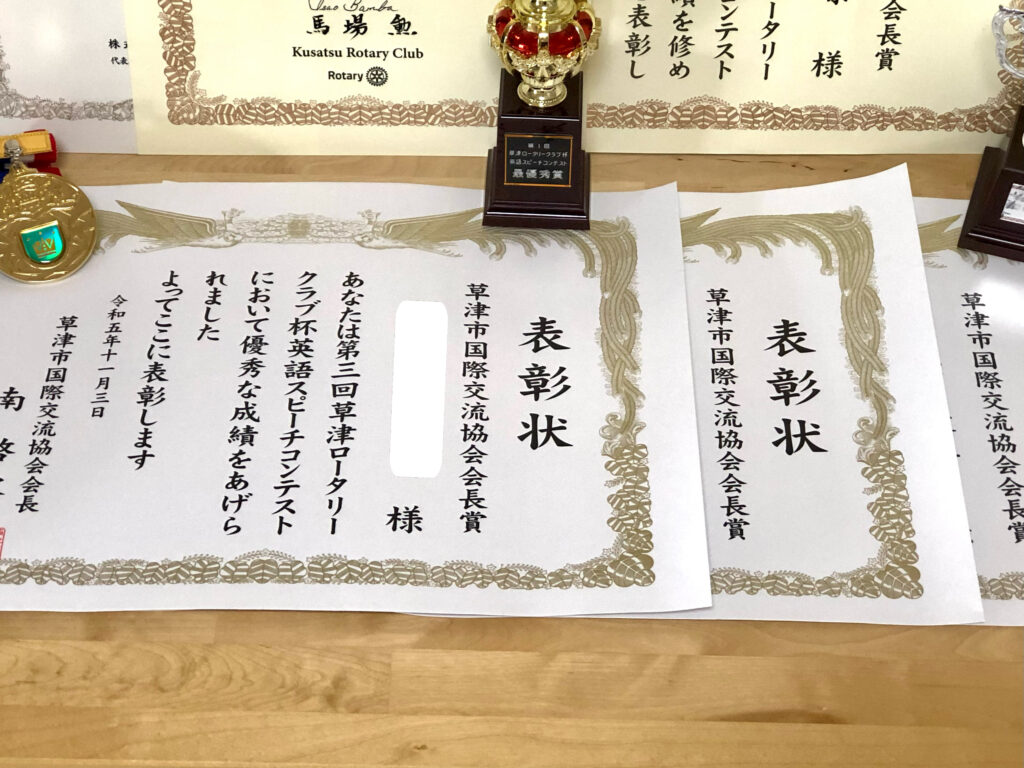 株
代表
馬場 勲
Kusatsu Rotary Club
Rotary
会長賞
様
タリー
テスト
績を修め
表彰し
第1回
草津ロータリークラブ杯
英語スピーチコンテスト
最優秀賞
表彰状
草津市国際交流協会会長賞
様
あなたは第三回草津ロータリー
クラブ杯英語スピーチコンテスト
において優秀な成績をあげら
れました
よってここに表彰します
令和五年十一月三日
草津市国際交流協会会長
南
表彰状
草津市国際交流協会会長賞
草津市国際交流協会会長賞